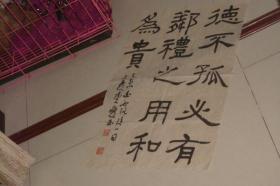 德不孤必有
鄰禮之用和
為貴